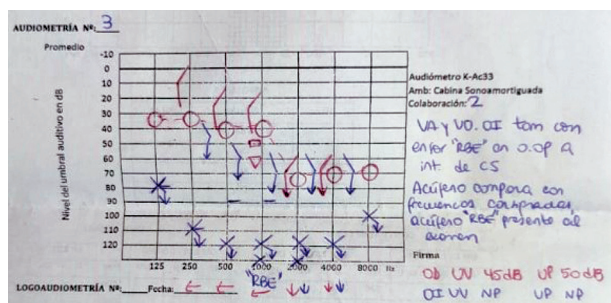 AUDIOMETRÍA Nº: 3
Promedio
Nivel del umbral auditivo en dB
-10
0
10
20
30
40
50
60
70
80
90
100
110
120
125 250 500 1000 2000 4000 8000 Hz
"RBE"
LOGOAUDIOMETRÍA Nº: Fecha:
Audiómetro K-Ac33
Amb: Cabina Sonoamortiguada
Colaboración: 2
VA y VO. OI tom con
enfer "RBE" en O.Op a
int. de CS
Acúfeno compara con
frecuencias comparadas,
acúfeno "RBE" presente al
examen
Firma
OD UV 45dB UP 50dB
OI UV NP UP NP